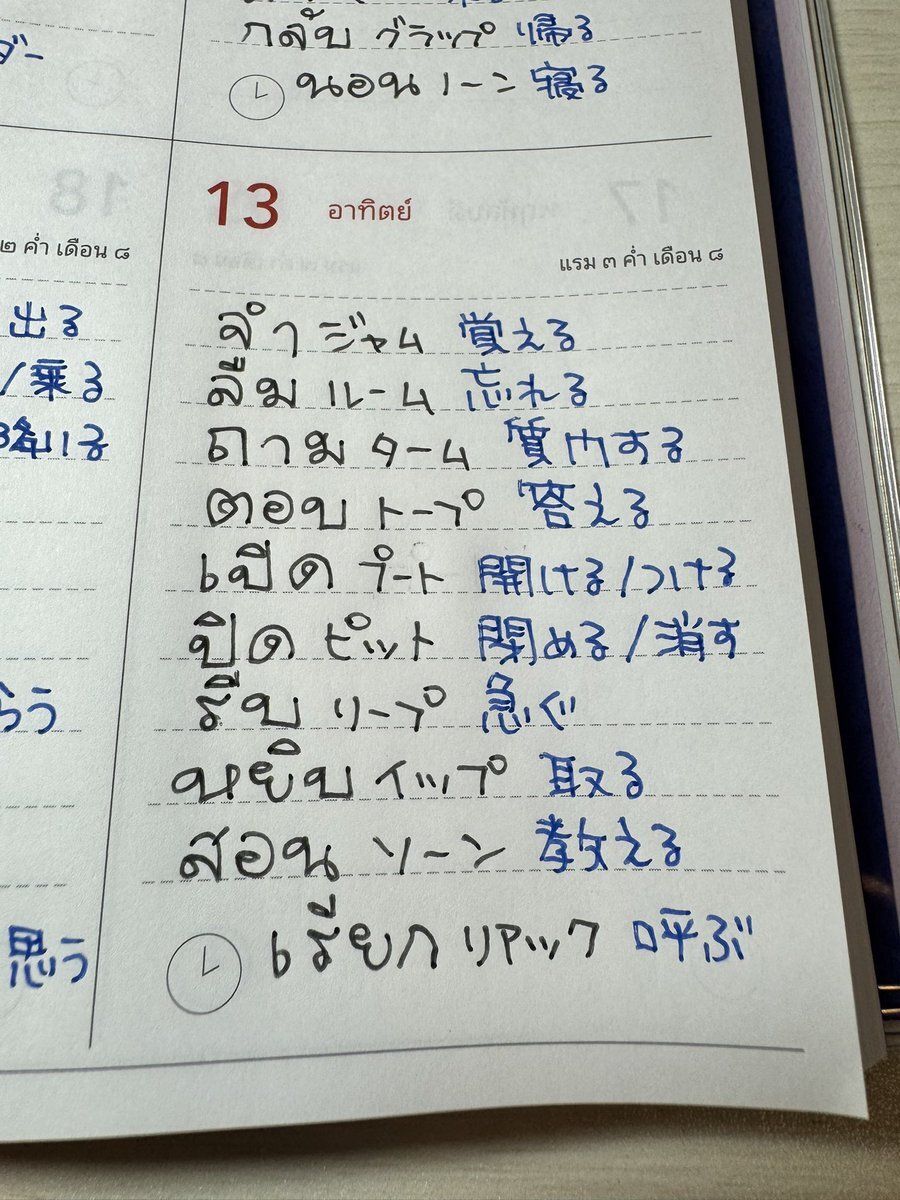 กลับ グラップ 帰る
นอน ノーン 寝る
ダー
13 อาทิตย์
แรม ๓ ค่ำ เดือน ๘
จำ ジャム 覚える
ลืม ルーム 忘れる
ถาม ターム 質問する
ตอบ トープ 答える
เปิด プート 開ける/つける
ปิด ピット 閉める/消す
รีบ リープ 急ぐ
หยิบ イップ 取る
สอน ソーン 教える
เรียก リアック 呼ぶ
๒ ค่ำ เดือน ๘
出る
/乗る
降りる
らう
思う